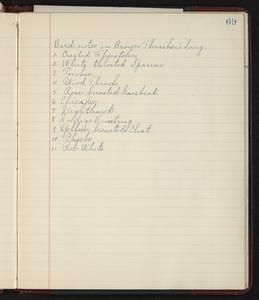 69
Bird notes in Brown Thrasher's Song.
1. Crested Flycatcher
2. White throated Sparrow
3. Towhee
4. Wood Thrush
5. Rose breasted Grosbeak
6. Chicadee
7. Nighthawk
8. Indigo Bunting
9. Yellow breasted Chat
10. Phoebe
11. Bob White